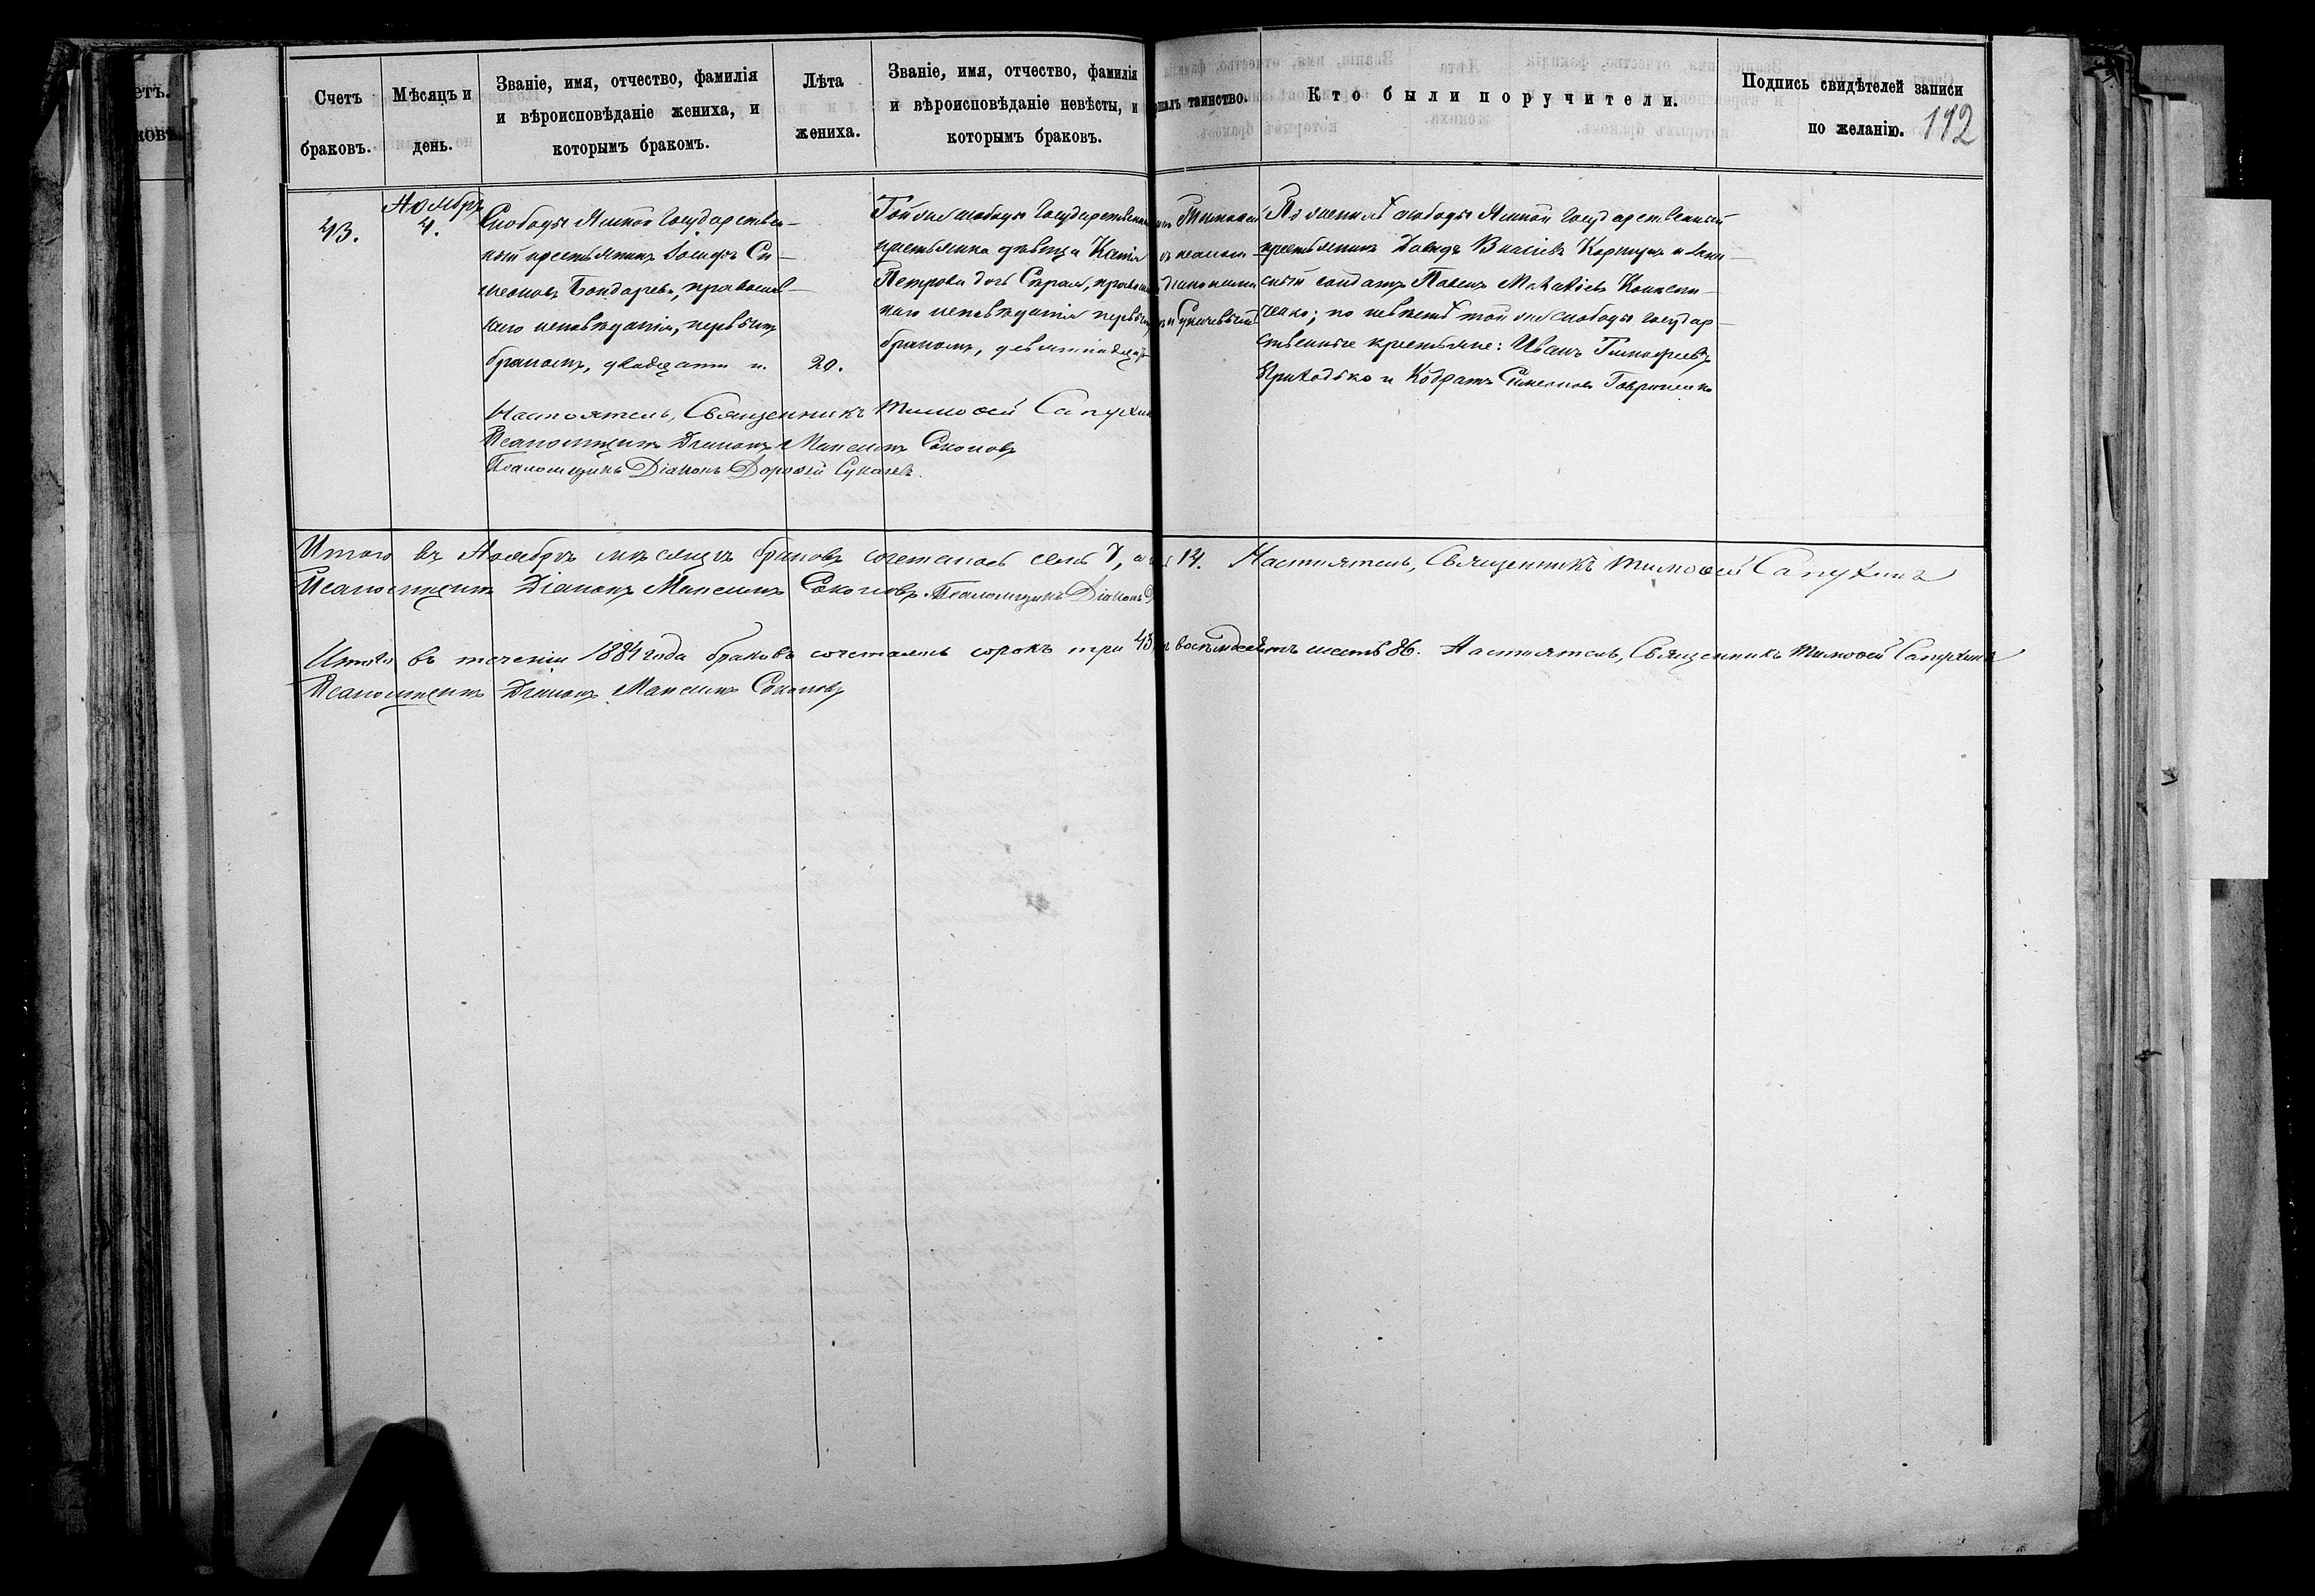 Счетъ браковъ.
Мѣсяцъ и день.
Званіе, имя, отчество, фамилія
и вѣроисповѣданіе жениха, и
которымъ бракомъ.
Лѣта жениха.
Званіе, имя, отчество, фамилія
и вѣроисповѣданіе невѣсты, и
которымъ браковъ.
таинство.
Кто были поручители.
Подпись свидѣтелей записи
по желанію.
112
43.
Ноябрь
4.
Слободы Ямной государствен-
ный крестьянинъ Іосифъ Си-
меоновъ Бондаревъ, православ-
наго исповѣданія, первымъ
бракомъ, двадцати л.
20.
Той же слободы государственна
крестьянка дѣвица
Петрова дочь православ
наго исповѣданія первымъ
бракомъ, девятнадцать
По женихѣ слободы Ямной государственный
крестьянинъ Давидъ Власіевъ и
солдатъ Павелъ
по невѣстѣ той же слободы государ-
ственные крестьяне: Иванъ Тимофеевъ
Приходько и Кодратъ Симеоновъ Гавриленко
Настоятель, Священникъ Тимоѳей Сапухин
Псаломщикъ Діаконъ Максимъ Соколовъ
Псаломщикъ Діаконъ Дороѳей Сукачевъ.
Итого въ Ноябрѣ мѣсяцѣ браковъ сочеталось семь 7, 14. Настоятель, Священникъ Тимоѳей Сапухинъ
Псаломщикъ Діаконъ Максимъ Соколовъ. Псаломщикъ Діаконъ
Итого въ теченіи 1884 года браковъ сочеталось сорокъ три 43 восемьдесятъ шесть 86. Настоятель, Священникъ Тимоѳей Сапухинъ
Псаломщикъ Діаконъ Максимъ Соколовъ